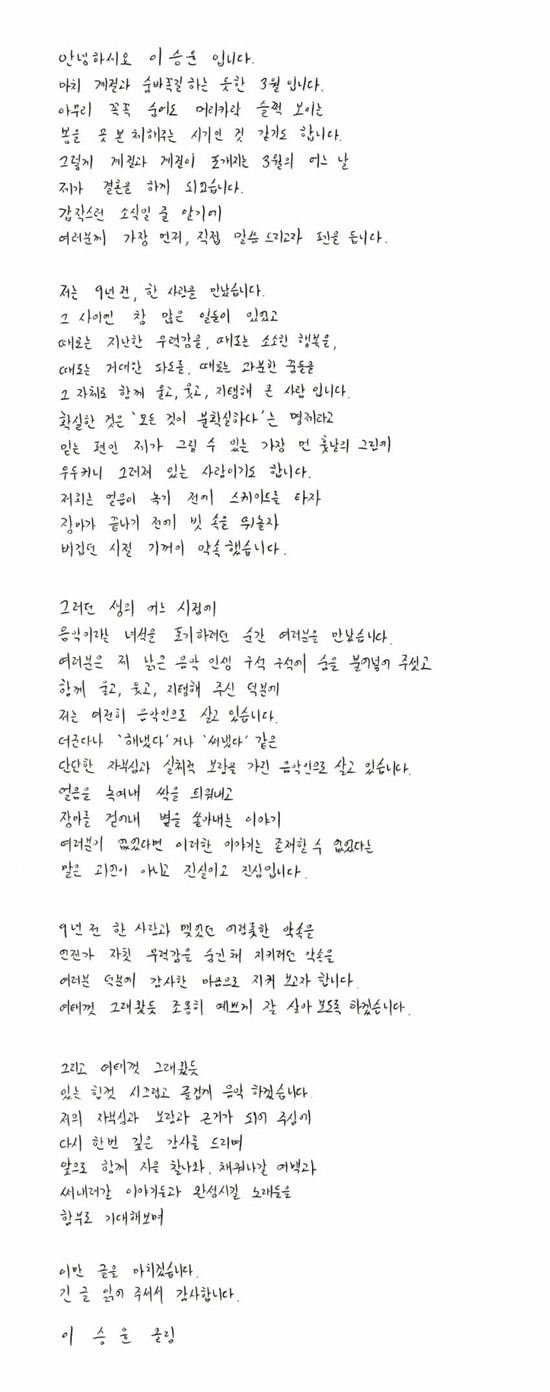 안녕하시오 이승윤 입니다.
마치 계절과 숨바꼭질하는 듯한 3월입니다.
아무리 꼭꼭 숨어도 머리카락 슬쩍 보이는
봄을 못 본 체해주는 시기인 것 같기도 합니다.
그렇게 계절과 계절이 포개지는 3월의 어느 날
제가 결혼을 하게 되었습니다.
갑작스런 소식일 줄 알기에
여러분께 가장 먼저, 직접 말씀 드리고자 펜을 듭니다.
저는 9년 전, 한 사람을 만났습니다.
그 사이엔 참 많은 일들이 있었고
때로는 지난한 무력감을, 때로는 소소한 행복을,
때로는 거대한 파도를, 때로는 과분한 꿈들을
그 자체로 함께 울고, 웃고, 지탱해 온 사람입니다.
확실한 것은 '모든 것이 불확실하다'는 명제라고
믿는 편인 제가 그릴 수 있는 가장 먼 훗날의 그림에
우두커니 그려져 있는 사람이기도 합니다.
저희는 얼음이 녹기 전에 스케이트를 타자
장마가 끝나기 전에 빗 속을 뛰놀자
버겁던 시절 기꺼이 약속했습니다.
그러던 생의 어느 시점에
음악이라는 녀석을 포기하려던 순간 여러분을 만났습니다.
여러분은 제 낡은 음악 인생 구석 구석에 숨을 불어넣어 주셨고
함께 울고, 웃고, 지탱해 주신 덕분에
저는 여전히 음악인으로 살고 있습니다.
더군다나 '해냈다'거나 '써냈다' 같은
단단한 자부심과 실체적 보람을 가진 음악인으로 살고 있습니다.
얼음을 녹여내 싹을 틔워내고
장마를 걷어내 볕을 쏟아내는 이야기
여러분이 없었다면 이러한 이야기는 존재할 수 없었다는
말은 과언이 아니고 진실이고 진심입니다.
9년 전 한 사람과 맺었던 어렴풋한 약속을
언젠가 자칫 무력감을 숨긴 채 지키려던 약속을
여러분 덕분에 감사한 마음으로 지켜 보고자 합니다.
여태껏 그래왔듯 조용히 예쁘게 잘 살아 보도록 하겠습니다.
그리고 여태껏 그래왔듯
있는 힘껏 시끄럽고 즐겁게 음악 하겠습니다.
저의 자부심과 보람과 근거가 되어 주심에
다시 한번 깊은 감사를 드리며
앞으로 함께 지을 찰나와, 채워나갈 여백과
써내려갈 이야기들과 완성시킬 노래들을
함부로 기대해보며
이만 글을 마치겠습니다.
긴 글 읽어 주셔서 감사합니다.
이 승 윤 올림